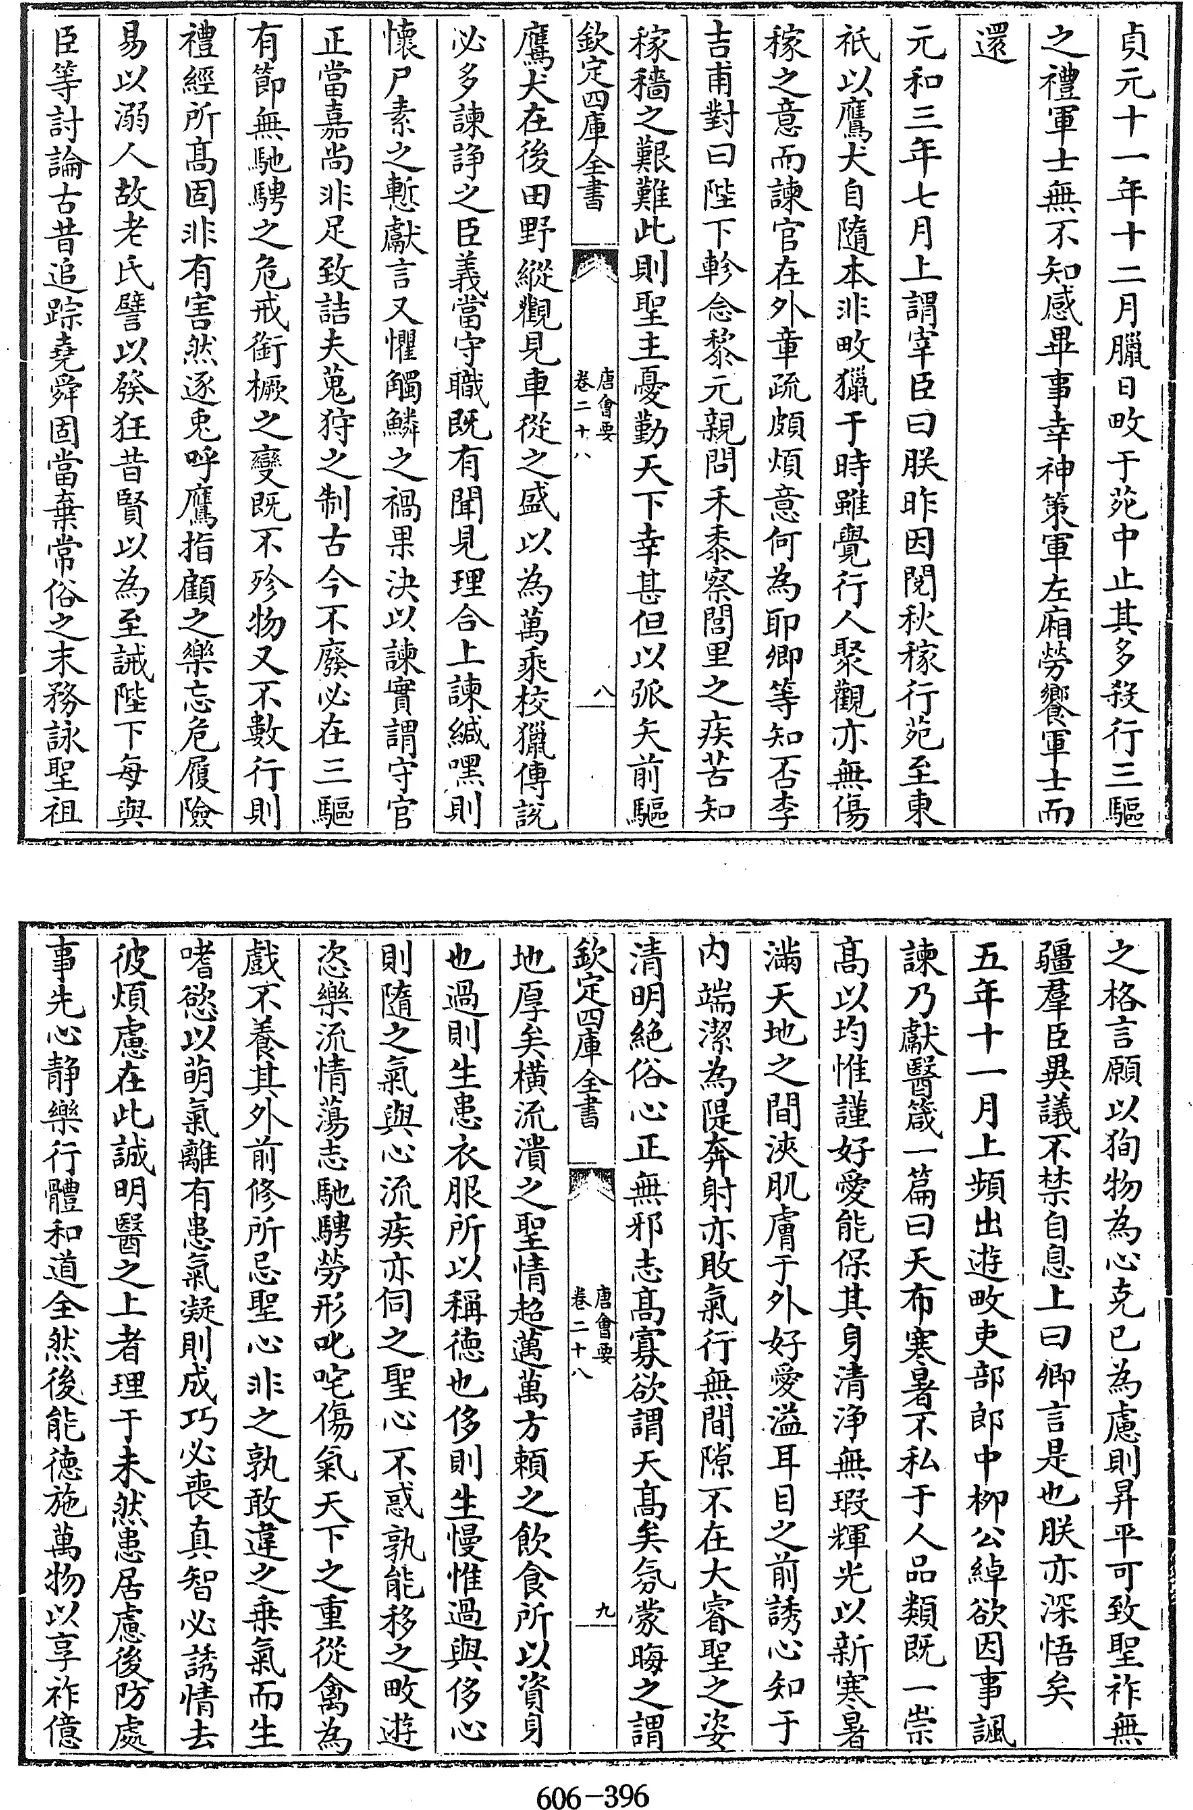 貞元十一年十二月臘日畋于苑中止其多殺行三驅
之禮軍士無不知感畢事幸神策軍左廂勞饗軍士而
還
元和三年七月上謂宰臣曰朕昨因閱秋稼行苑至東
祇以鷹犬自隨本非畋獵于時雖覺行人聚觀亦無傷
稼之意而諫官在外章疏頗煩意何為耶卿等知否李
吉甫對曰陛下軫念黎元親問禾黍察閭里之疾苦知
稼穡之艱難此則聖主憂勤天下幸甚但以弧矢前驅
欽定四庫全書 唐會要 卷二十八 八
鷹犬在後田野縱觀見車從之盛以為萬乘校獵傳說
必多諫諍之臣義當守職既有聞見理合上諫緘嘿則
懷尸素之慙獻言又懼觸鱗之禍果決以諫實謂守官
正當嘉尚非足致詰夫蒐狩之制古今不廢必在三驅
有節無馳騁之危戒銜橛之變既不殄物又不數行則
禮經所髙固非有害然逐兎呼鷹指顧之樂忘危履險
易以溺人故老氏譬以發狂昔賢以為至誡陛下每與
臣等討論古昔追踪堯舜固當棄常俗之末務詠聖祖
之格言願以狥物為心克已為慮則昇平可致聖祚無
疆羣臣異議不禁自息上曰卿言是也朕亦深悟矣
五年十一月上頻出遊畋吏部郎中柳公綽欲因事諷
諫乃獻醫箴一篇曰天布寒暑不私于人品類既一崇
髙以均惟謹好愛能保其身清浄無瑕輝光以新寒暑
滿天地之間浹肌膚于外好愛溢耳目之前誘心知于
内端潔為隄奔射亦敗氣行無間隙不在大睿聖之姿
清明絶俗心正無邪志髙寡欲謂天髙矣氛蒙晦之謂
欽定四庫全書 唐會要 卷二十八 九
地厚矣橫流潰之聖情超邁萬方賴之飲食所以資身
也過則生患衣服所以稱德也侈則生慢惟過與侈心
則隨之氣與心流疾亦伺之聖心不惑孰能移之畋遊
恣樂流情蕩志馳騁勞形叱咤傷氣天下之重從禽為
戲不養其外前修所忌聖心非之孰敢違之乗氣而生
嗜慾以萌氣離有患氣凝則成巧必喪真智必誘情去
彼煩慮在此誠明醫之上者理于未然患居慮後防處
事先心静樂行體和道全然後能德施萬物以享祚億
606-396